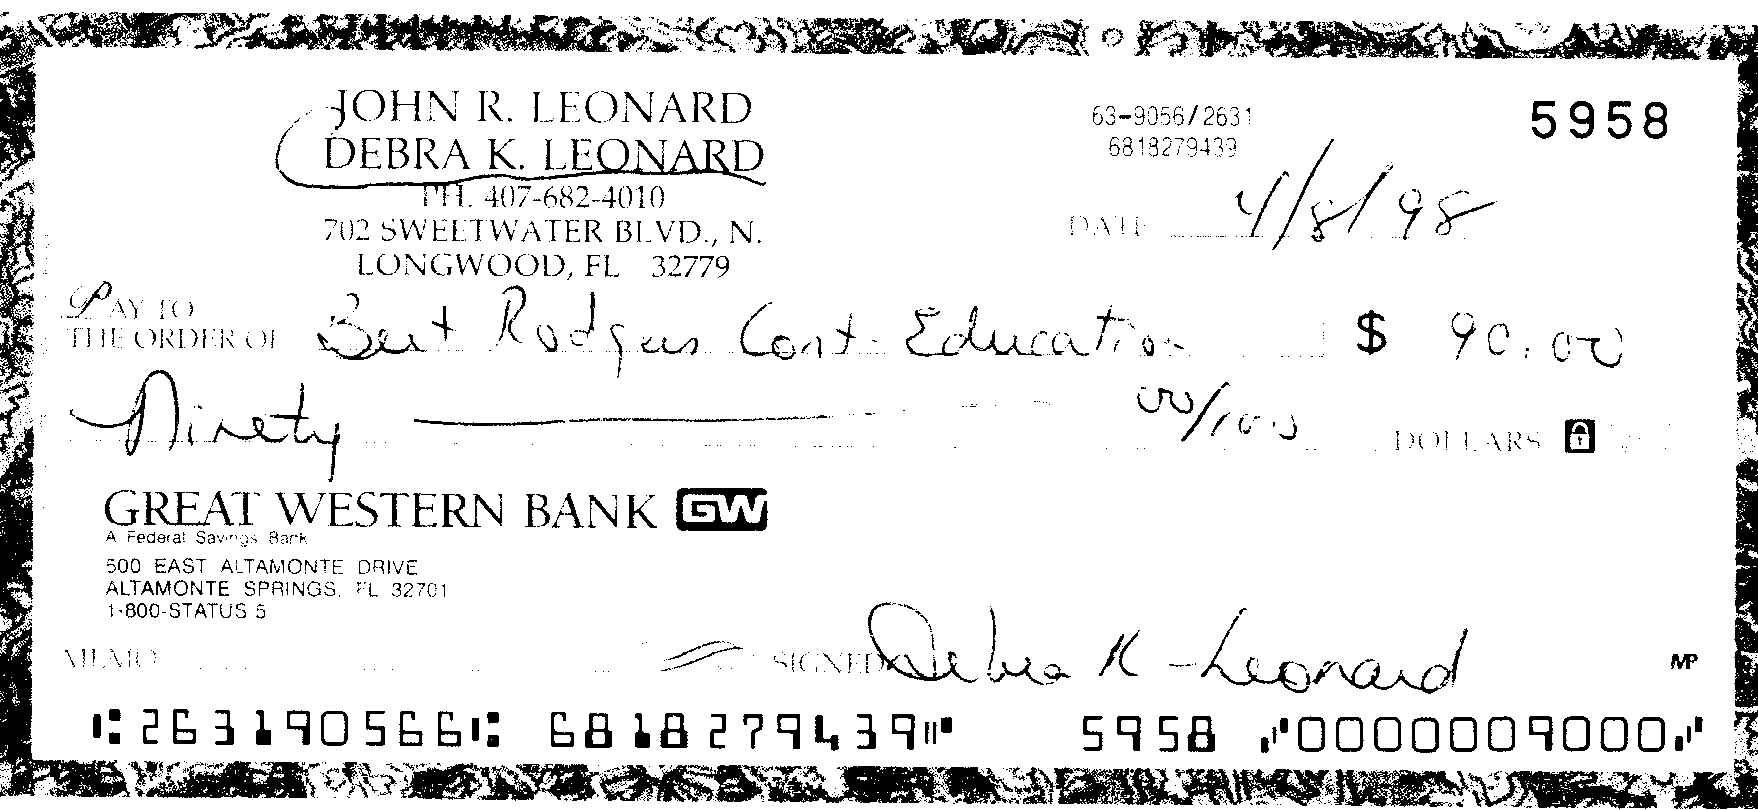 JOHN R. LEONARD
DEBRA K. LEONARD
PH. 407-682-4010
702 SWEETWATER BLVD., N.
LONGWOOD, FL 32779
63-9056/2631
6818279439
5958
DATE 4/8/98
PAY TO
THE ORDER OF Bert Rodgers Cont. Education $ 90.00
Ninety 00/100 DOLLARS
GREAT WESTERN BANK GW
A Federal Savings Bank
500 EAST ALTAMONTE DRIVE
ALTAMONTE SPRINGS, FL 32701
1-800-STATUS 5
MEMO SIGNED Debra K Leonard MP
⑆263190566⑆ 6818279439⑈ 5958 ⑇0000009000⑇